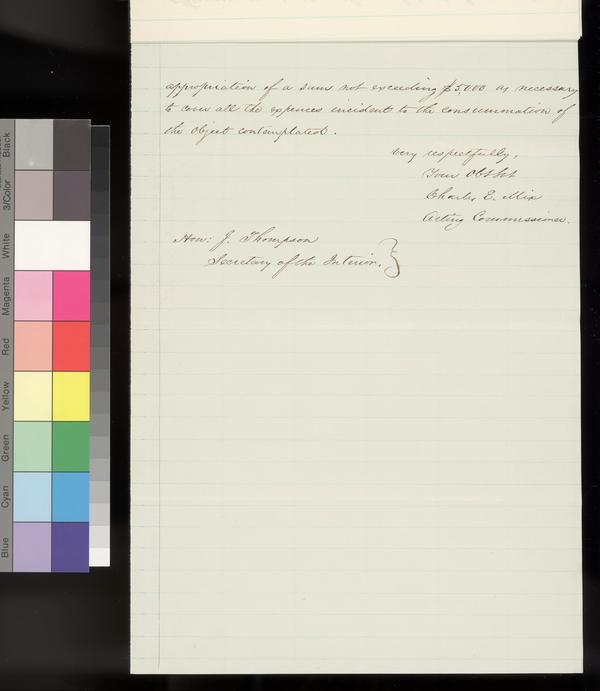 appropriation of a sum not exceeding $5,000 as necessary
to cover all the expences incident to the consummation of
the object contemplated.
Very respectfully,
Your Obt Svt
Charles E. Mix
Acting Commissioner.
Hon: J. Thompson
Secretary of the Interior. }
Black
3/Color
White
Magenta
Red
Yellow
Green
Cyan
Blue